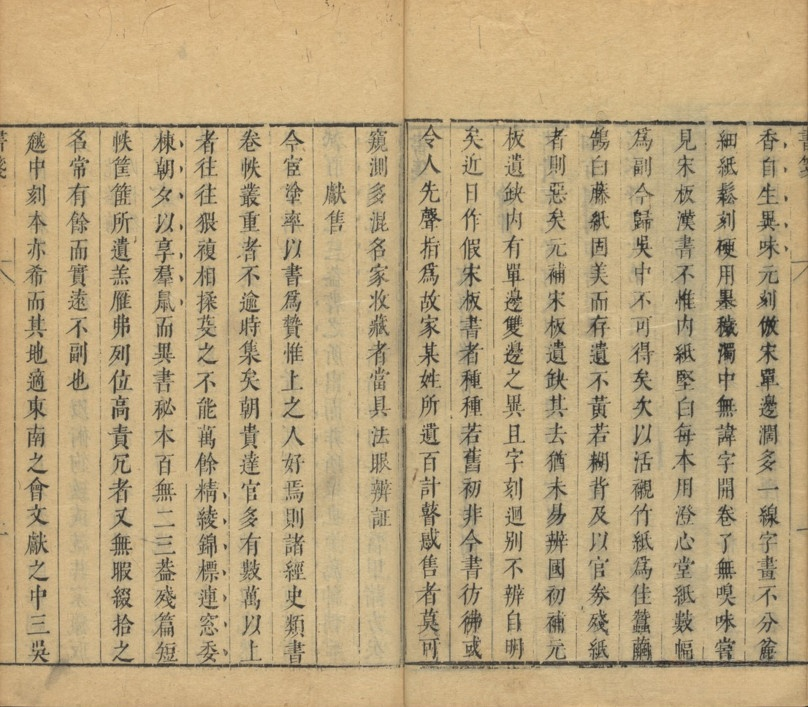 書箋
香自生異味元刻倣宋單邊濶多一線字畫不分麄
細紙鬆刻硬用墨穢濁中無諱字開卷了無嗅味嘗
見宋板漢書不惟内紙堅白每本用澄心堂紙數幅
爲副今歸吳中不可得矣次以活襯竹紙爲佳蠶繭
鵠白藤紙固美而存遺不黄若糊背及以官劵殘紙
者則惡矣元補宋板遺缺其去猶未易辨國初補元
板遺缺内有單邊雙邊之異且字刻迥别不辨自明
矣近日作假宋板書者種種若舊初非今書彷彿或
令人先聲指爲故家某姓所遺百計瞽惑售者莫可
窺測多混名家收藏者當具法眼辨証
獻售
今宦塗率以書爲贄惟上之人好焉則諸經史類書
卷帙叢重者不逾時集矣朝貴達官多有數萬以上
者往往猥複相揉芟之不能萬餘精綾錦標連窓委
棟朝夕以享羣鼠而異書秘本百無二三葢殘篇短
帙筐篚所遺羔雁弗列位高責冗者又無暇綴拾之
名常有餘而實遠不副也
越中刻本亦希而其地適東南之會文獻之中三吳
書箋